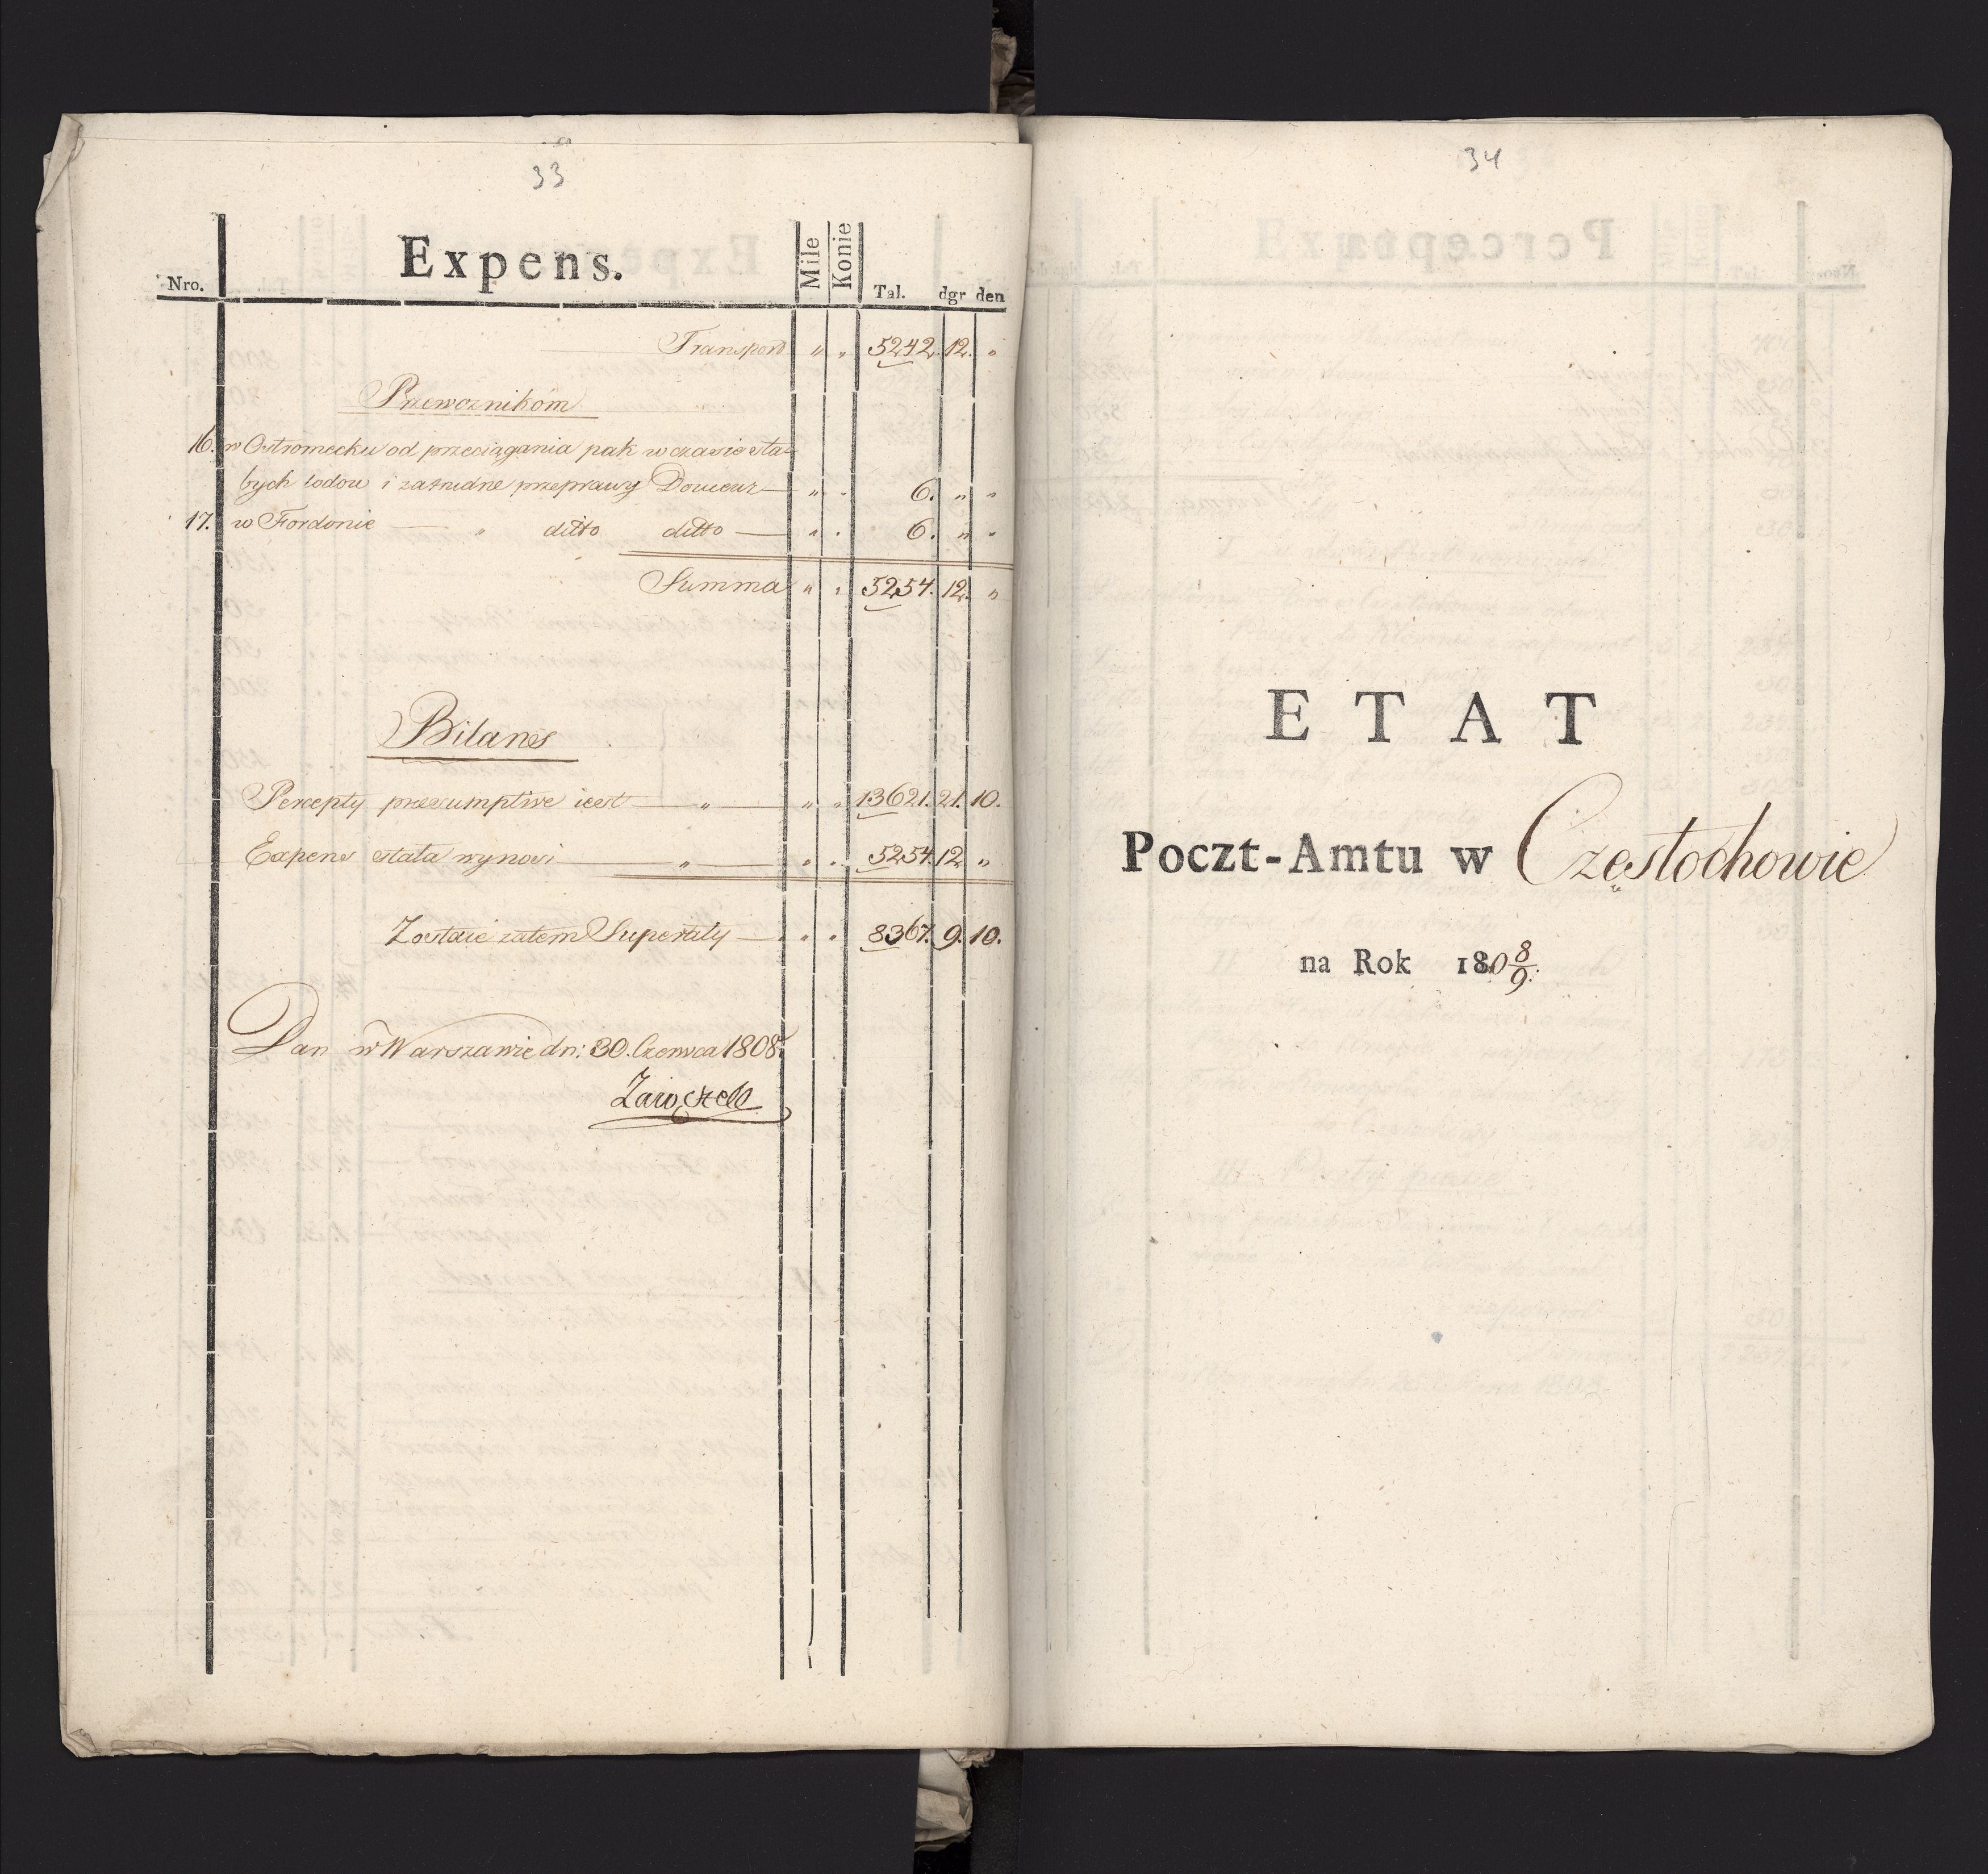 33
Nro. Expens. Mile Konie Tal. dgr den
Transport " " 5242. 12. "
Przewoznikom
16. w Ostromecku od przeciągania pak w czasie sła-
bych lodow i za trudne przeprawy Douceur — " " 6. " "
17. w Fordonie — " ditto ditto — " " 6. " "
Summa " " 5254. 12. "
Bilans
Percepty praesumptive iest — " — " " 13621. 21. 10.
Expens etata wynosi — " — " " 5254. 12. "
Zostaie zatem Superaty — " " 8367. 9. 10.
Dan w Warszawie dn: 30. Czerwca 1808.
Zaiączek
34
ETAT
Poczt-Amtu w Częstochowie
na Rok 180 8/9.